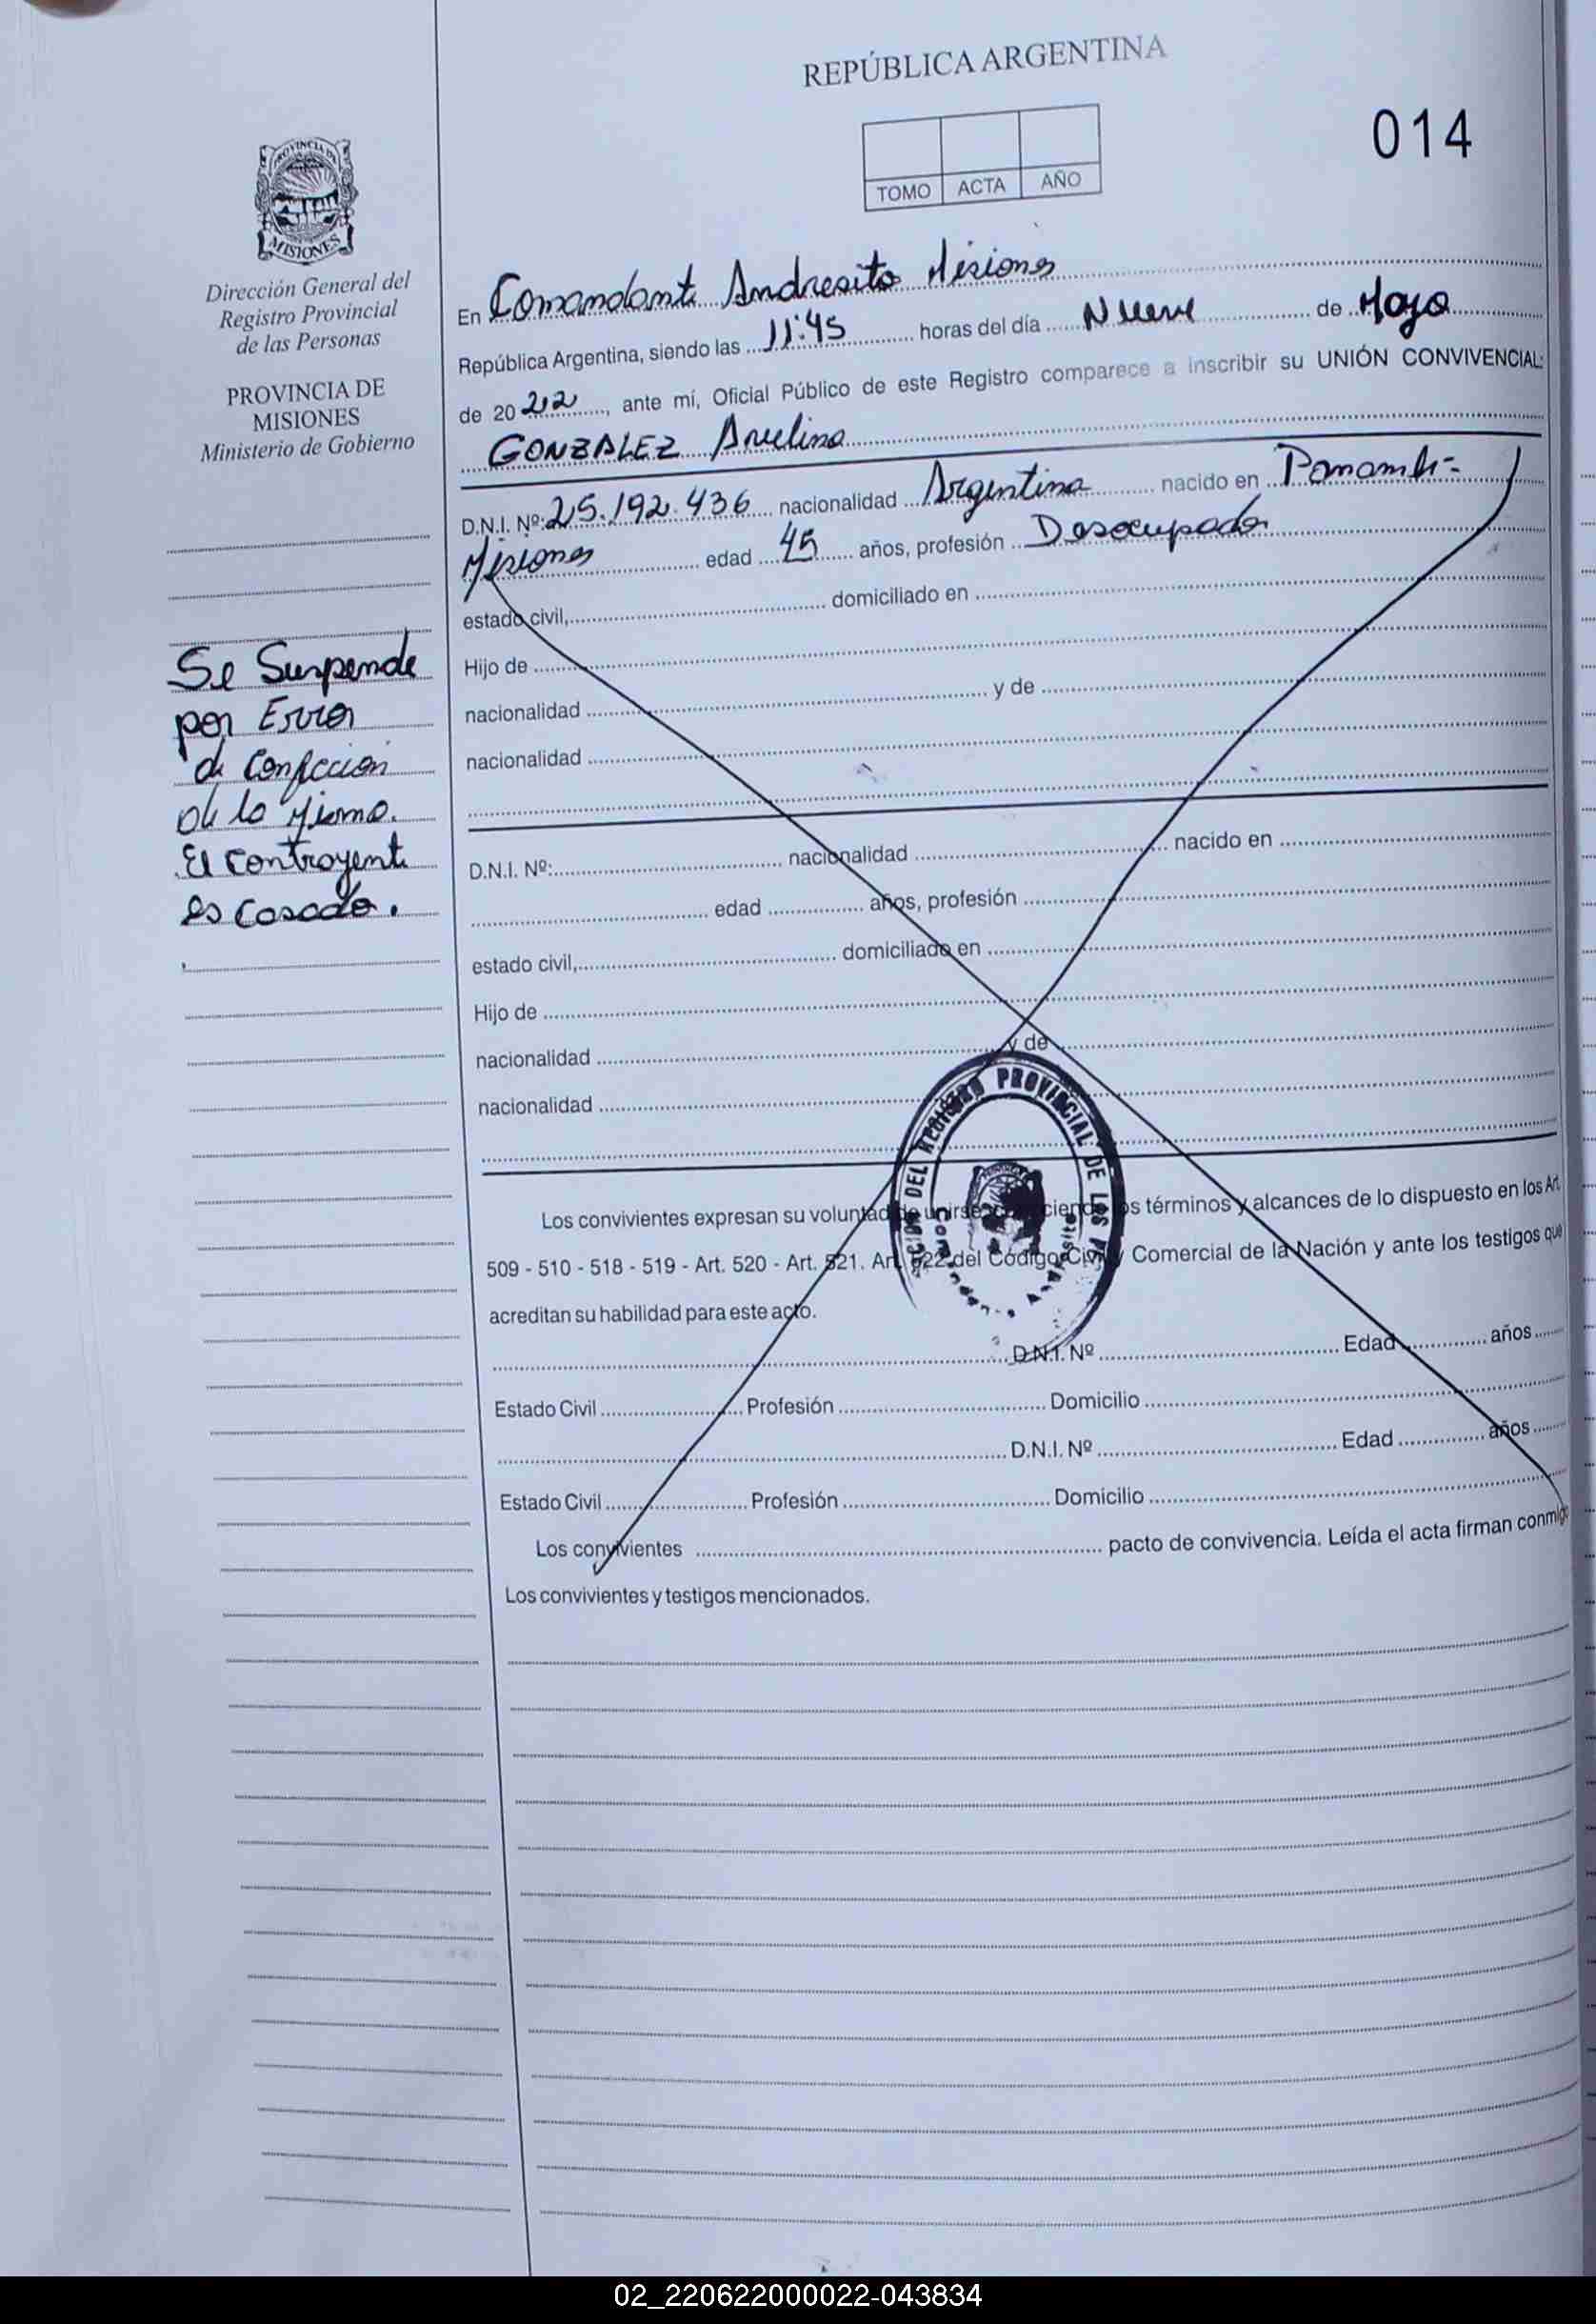 REPÚBLICA ARGENTINA
014
TOMO ACTA AÑO
PROVINCIA DE
MISIONES
Dirección General del
Registro Provincial
de las Personas
PROVINCIA DE
MISIONES
Ministerio de Gobierno
Se Suspende
por Error
de Confección
de la Misma.
El Contrayente
es Casado.
En Comandante Andresito Misiones
República Argentina, siendo las 11:45 horas del día Nueve de Mayo
de 2022, ante mí, Oficial Público de este Registro comparece a inscribir su UNIÓN CONVIVENCIAL:
GONZALEZ Avelino
D.N.I. Nº: 25.192.436 nacionalidad Argentina nacido en Panambi-
Misiones edad 45 años, profesión Desocupado
estado civil, domiciliado en
Hijo de
nacionalidad y de
nacionalidad
D.N.I. Nº: nacionalidad nacido en
edad años, profesión
estado civil, domiciliado en
Hijo de
nacionalidad y de
nacionalidad
DEL REGISTRO PROVINCIAL DE LAS
Los convivientes expresan su voluntad de unirse los términos y alcances de lo dispuesto en los Art.
509 - 510 - 518 - 519 - Art. 520 - Art. 521. Art. 522 del Código Civil y Comercial de la Nación y ante los testigos que
acreditan su habilidad para este acto.
D.N.I. Nº Edad años
Estado Civil Profesión Domicilio
D.N.I. Nº Edad años
Estado Civil Profesión Domicilio
Los convivientes pacto de convivencia. Leída el acta firman conmigo
Los convivientes y testigos mencionados.
02_220622000022-043834